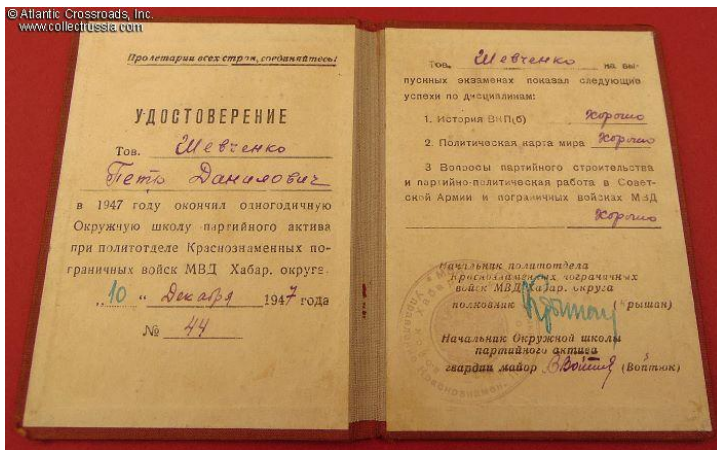 © Atlantic Crossroads, Inc.
www.collectrussia.com
Пролетарии всех стран, соединяйтесь!
УДОСТОВЕРЕНИЕ
Тов. Шевченко
Петр Данилович
в 1947 году окончил одногодичную
Окружную школу партийного актива
при политотделе Краснознаменных по-
граничных войск МВД Хабар. округа.
„10" Декабря 1947 года
№ 44
Тов. Шевченко на вы-
пускных экзаменах показал следующие
успехи по дисциплинам:
1. История ВКП(б) Хорошо
2. Политическая карта мира Хорошо
3 Вопросы партийного строительства
и партийно-политическая работа в Совет-
ской Армии и пограничных войсках МВД
Хорошо
Начальник политотдела
Краснознаменных пограничных
войск МВД Хабар. округа
полковник (Крышан)
Начальник Окружной школы
партийного актива
гвардии майор (Войтюк)